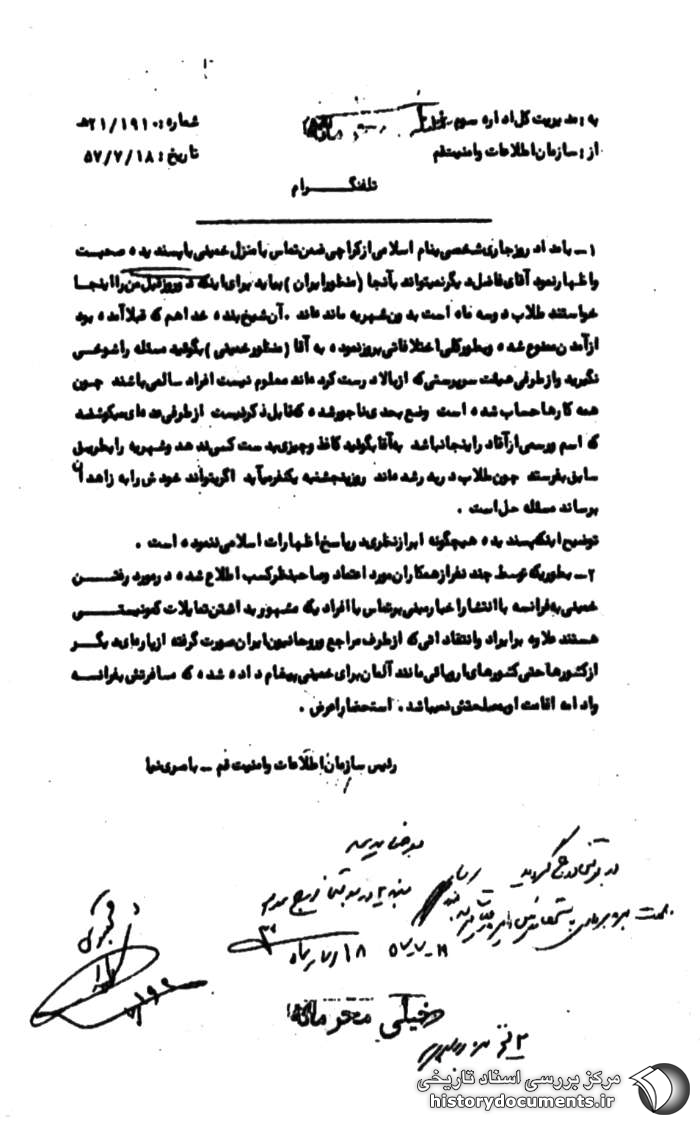 به: مدیریت کل اداره سوم
شماره: ۲۱/۱۹۱۰ھ
از: سازمان اطلاعات و امنیت قم
تاریخ: ۵۷/۷/۱۸
تلفنگرام
۱ـ بامداد روز جاری شخصی بنام اسلامی از کراچی ضمن تماس با منزل خمینی با پسندیده صحبت
و اظهار نمود آقای فاضل دیگر نمیتواند بآنجا (منظور ایران) بیاید برای اینکه دو روز قبل من را اینجا
خواستند طلاب دو سه ماه است بدون شهریه مانده‌اند. آن شیخ بنده خدا هم که قبلا آمده بود
از آمدن ممنوع شده و بطور کلی اختلافاتی بروز نموده به آقا (منظور خمینی) بگوئید مسئله را شوخی
نگیرید و از طرفی هیئت سرپرستی که از بالا درست کرده‌اند معلوم نیست افراد سالمی باشند چون
همه کارها حساب شده است وضع بعدی ناجور شده که قابل ذکر نیست از طرفی عده‌ای میکوشند
که اسم و رسمی از آقا در اینجا نباشد به آقا بگوئید کاغذ و چیزی بدست کسی ندهد و شهریه را بطریق
سابق بفرستد چون طلاب دربدر شده‌اند روز پنجشنبه یکنفر میآید اگر بتواند خودش را به زاهدان
برساند مسئله حل است .
توضیح اینکه پسندیده هیچگونه ابراز نظری در پاسخ اظهارات اسلامی ننموده است .
۲ـ بطوریکه توسط چند نفر از همکاران مورد اعتماد و صاحبنظر کسب اطلاع شده در مورد رفتن
خمینی به فرانسه با انتشار اخبار مبنی بر تماس با افرادیکه مشهور به داشتن تمایلات کمونیستی
هستند علاوه بر ایراد و انتقاداتی که از طرف مراجع و روحانیون ایران صورت گرفته از پاره‌ای دیگر
از کشورها حتی کشورهای اروپائی مانند آلمان برای خمینی پیغام داده شده که مسافرتش بفرانسه
و ادامه اقامت او بمصلحتش نمیباشد. استحضارا عرض .
رئیس سازمان اطلاعات و امنیت قم ـ باصری نیا
در بولتن درج گردید
۱۸
خیلی محرمانه
مرکز بررسی اسناد تاریخی
historydocuments.ir